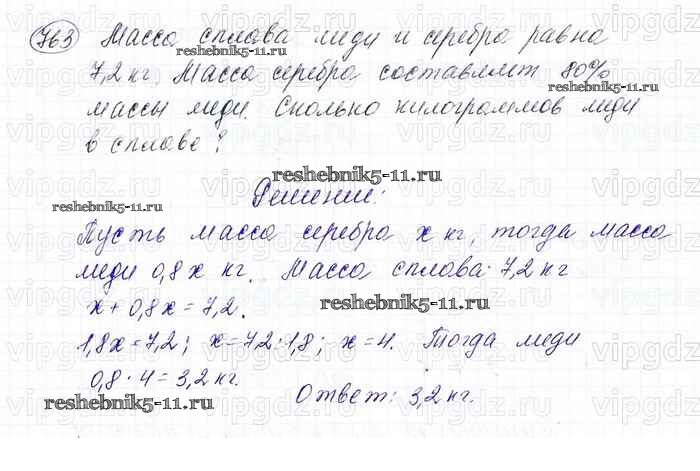 763 Масса сплава меди и серебра равна
reshebnik5-11.ru
7,2 кг. Масса серебра составляет 80%
reshebnik5-11.ru
массы меди. Сколько килограммов меди
в сплаве?
reshebnik5-11.ru
Решение:
reshebnik5-11.ru
Пусть масса серебра x кг, тогда масса
меди 0,8x кг. Масса сплава 7,2 кг
x + 0,8x = 7,2.
reshebnik5-11.ru
1,8x = 7,2; x = 7,2 : 1,8; x = 4. Тогда меди
0,8 · 4 = 3,2 кг.
Ответ: 3,2 кг.
reshebnik5-11.ru
reshebnik5-11.ru
vipgdz.ru